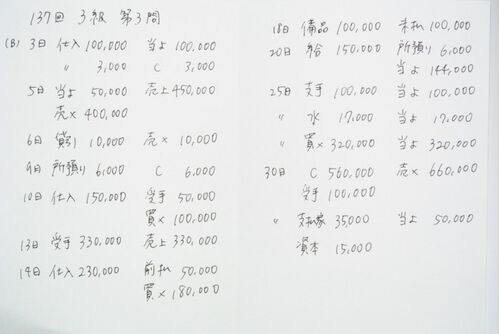 137回 3級 第3問
(B) 3日 仕入 100,000 当よ 100,000
〃 3,000 C 3,000
5日 当よ 50,000 売上 450,000
売× 400,000
6日 貸引 10,000 売× 10,000
9日 所預り 6,000 C 6,000
10日 仕入 150,000 受手 50,000
買× 100,000
13日 受手 330,000 売上 330,000
14日 仕入 230,000 前払 50,000
買× 180,000
18日 備品 100,000 未払 100,000
20日 給 150,000 所預り 6,000
当よ 144,000
25日 支手 100,000 当よ 100,000
〃 水 17,000 当よ 17,000
〃 買× 320,000 当よ 320,000
30日 C 560,000 売× 660,000
受手 100,000
〃 支払家 35,000 当よ 50,000
資本 15,000